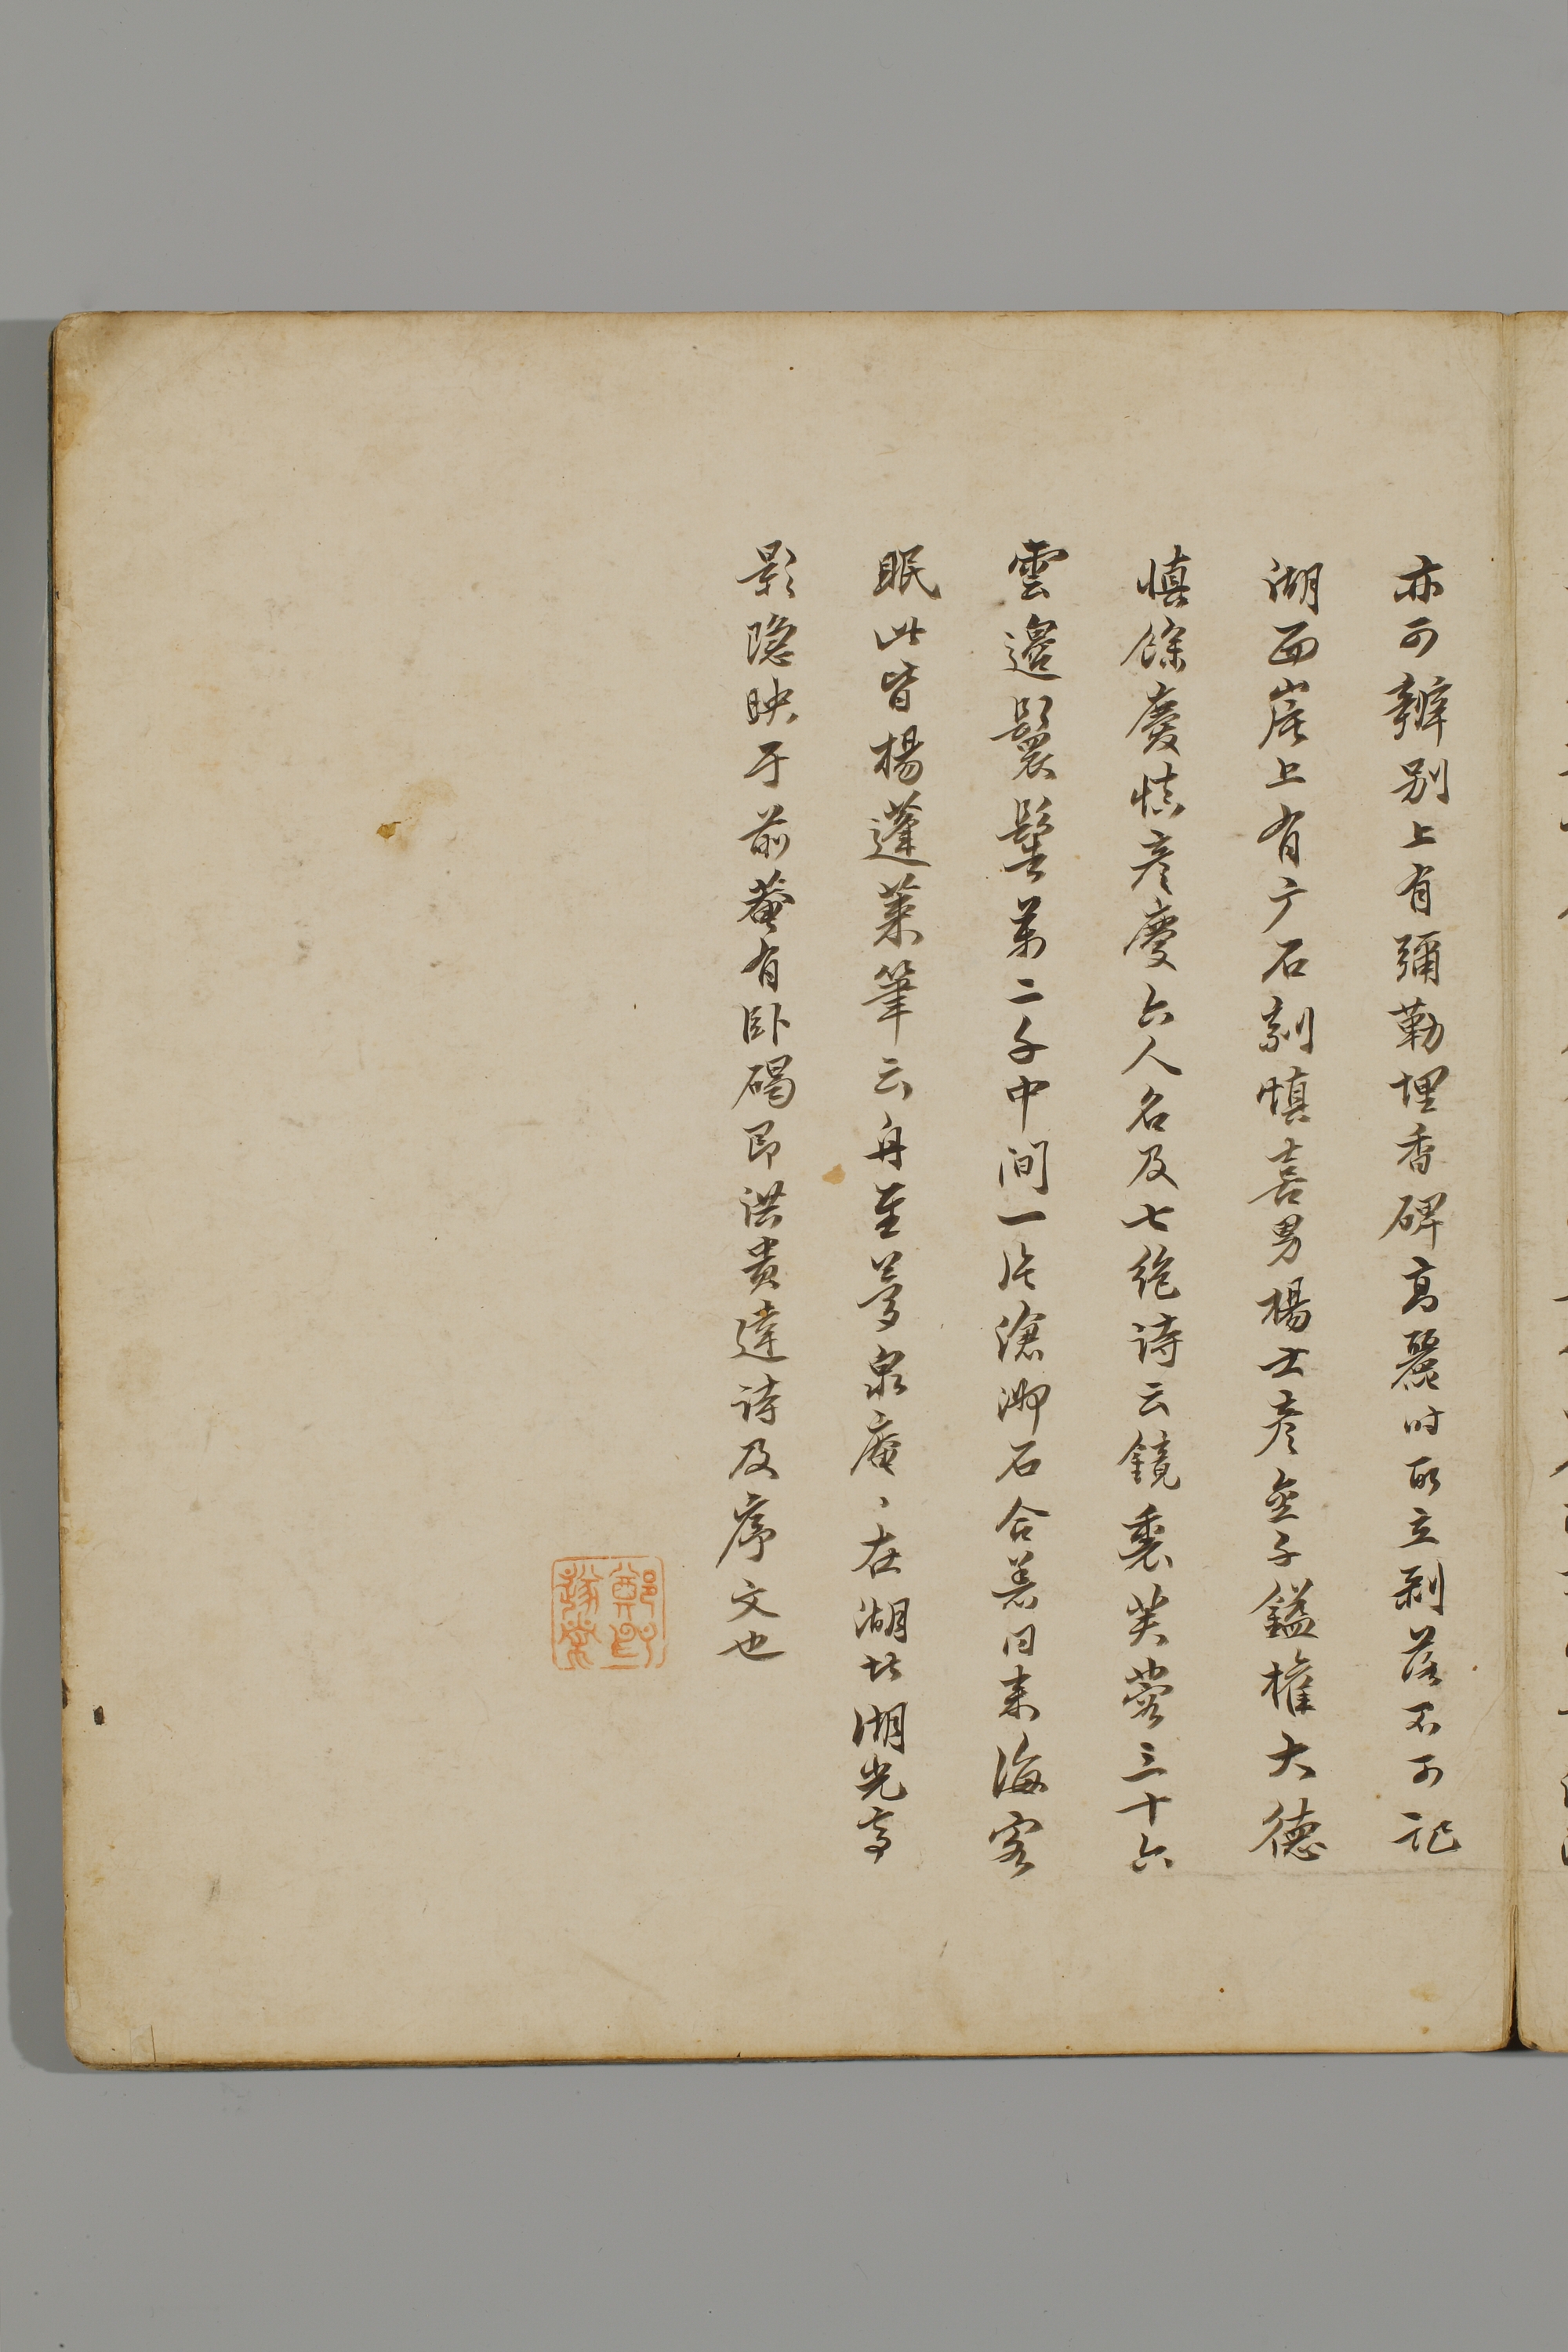 亦可辨別上有彌勒埋香碑高麗時所立剝落不可記
湖西崖上有广石刻愼喜男楊士彦金子鎰權大德
愼餘慶愼彦慶六人名及七絶詩云鏡裏芙蓉三十六
雲邊鬟髻萬二千中間一片滄洲石合着同來海客
眠此皆楊蓬萊筆云舟至夢泉庵〻在湖北湖光亭
影隱映于前菴有臥碣卽洪貴達詩及序文也
鄭
遂榮